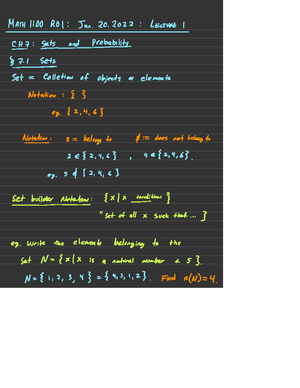 MATH 1100 R01: Jan. 20. 2022: LECTURE 1
CH 7: Sets and Probability
§ 7.1 Sets
Set = Colletion of objects or elements
Notation: { }
eg. { 2, 4, 6 }
Notation: ε = belongs to ∉ := does not belong to
2 ∈ { 2, 4, 6 } , 4 ∈ { 2, 4, 6 }.
eg. 5 ∉ { 2, 4, 6 }
Set builder Notation: { x | x condition }
"Set of all x such that ... }
eg. Write the elements belonging to the
set N = { x | x is a natural number < 5 }.
N = { 1, 2, 3, 4 } = { 4, 3, 1, 2 }. Find n(N) = 4.